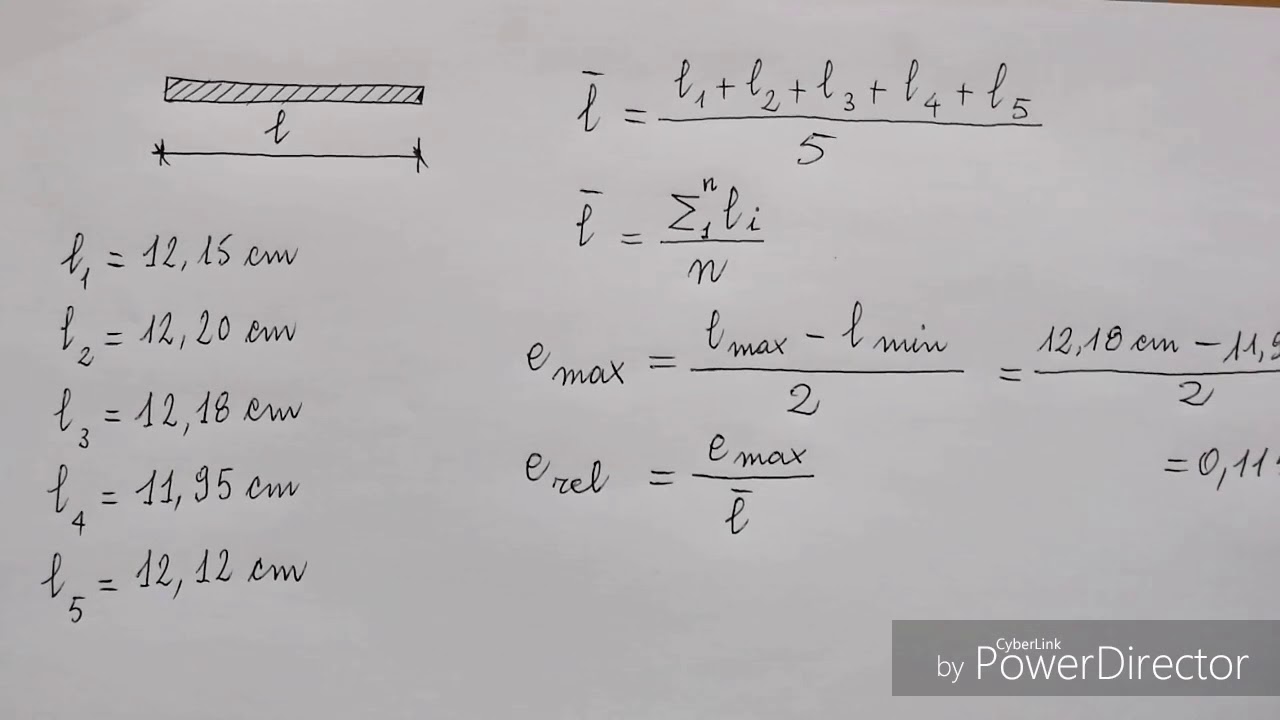 l
l₁ = 12,15 cm
l₂ = 12,20 cm
l₃ = 12,18 cm
l₄ = 11,95 cm
l₅ = 12,12 cm
l̄ = (l₁ + l₂ + l₃ + l₄ + l₅) / 5
l̄ = (∑₁ⁿ lᵢ) / n
e max = (l max − l min) / 2 = (12,18 cm − 11,9) / 2
= 0,11
e rel = e max / l̄
CyberLink
by PowerDirector